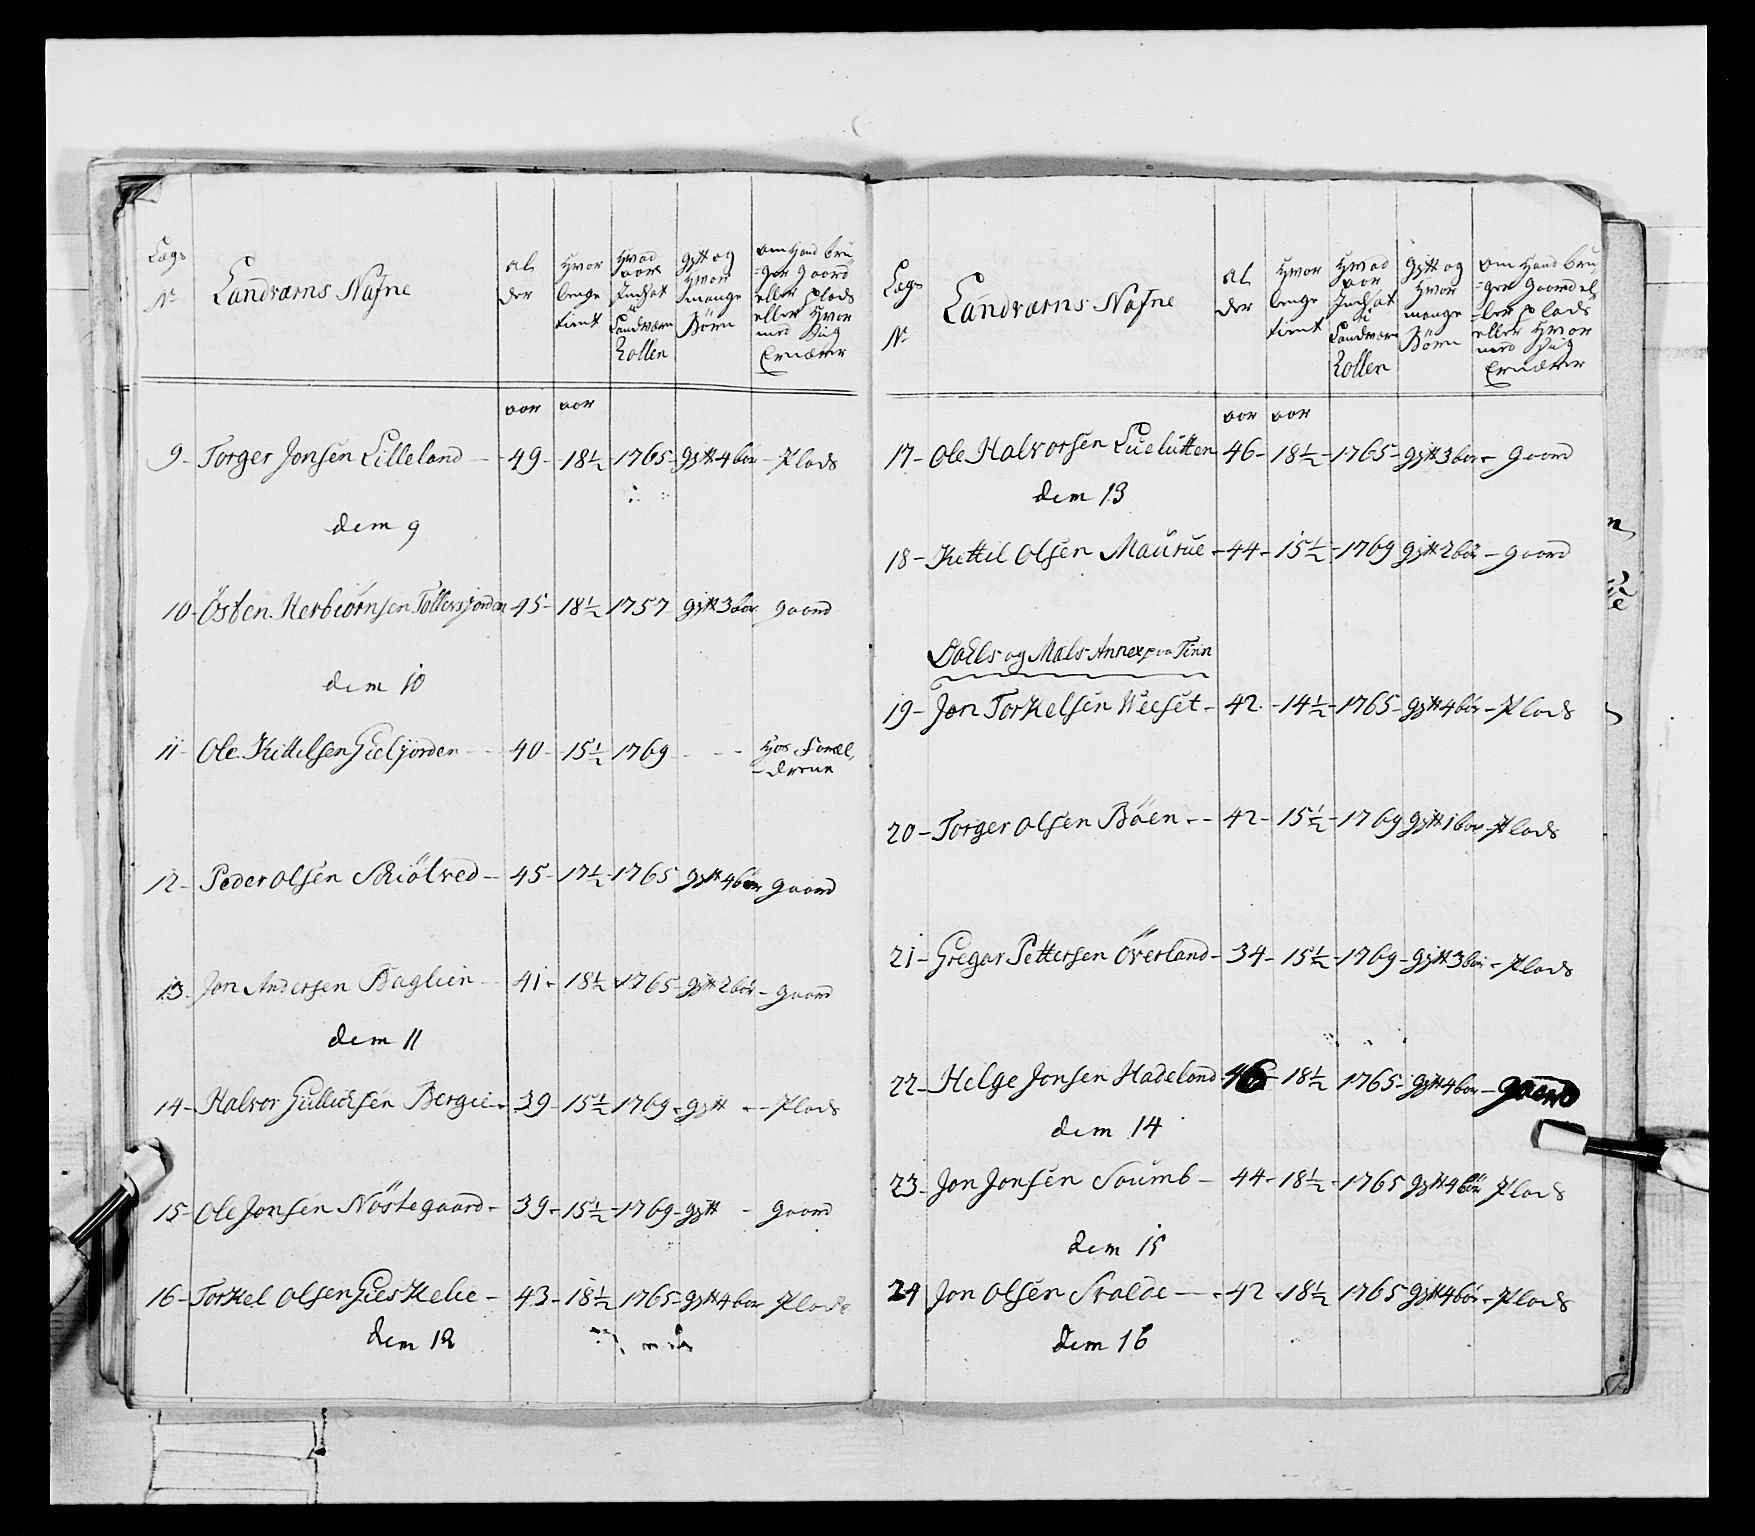 Lægs No
Landværns Nafne
al der
Hvor længe tient
Hvad aar Indsat i Landværn Rollen
gift og Hvor mange Børn
om Hand bru-ger gaard eller Plads eller Hvor med Sig Ernærer
aar aar
9 - Torger Jonsen Lilleland - 49 - 18 1/2 1765 - gift 4 bør - Plads
dem 9
10 - Østen Herbiørnsen Tollefsjorden 45 - 18 1/2 1757 gift 3 bør gaard
dem 10
11 - Ole Kittilsen Gieljorden - 40 - 15 1/2 1769 - - - Hos Foræl-drene
12 - Peder Olsen Schiøtved - 45 - 17 1/2 - 1765 gift 4 bør gaard
13 - Jon Andersen Baglien - 41 - 18 1/2 - 1765 - gift 2 bør - gaard
dem 11
14 - Halvor Gullichsen Bergie - 39 - 15 1/2 1769 - gift - - Plads
15 - Ole Jonsen Nøstegaard - 39 - 15 1/2 - 1769 - gift - gaard
16 - Torkel Olsen Gieskelie - 43 - 18 1/2 1765 - gift 4 bør Plads
dem 12
Lægs No
Landværns Nafne
al der
Hvor længe tient
Hvad aar Indsat i Landværn Rollen
gift og Hvor mange Børn
om Hand bru-ger gaard el-ler Plads eller Hvor med Sig Ernærer
aar aar
17 - Ole Halvorsen Luelutten 46 - 18 1/2 - 1765 - gift 3 bør - gaard
dem 13
18 - Kittil Olsen Maurue - 44 - 15 1/2 - 1769 gift 2 bør - gaard
Dahls og Mæls Annex paa Tinn
19 - Jon Torkelsen Weeset - 42 - 14 1/2 - 1765 - gift 4 bør - Plads
20 - Torger Olsen Bøen - - 42 - 15 1/2 - 1769 gift 1 bør - Plads
21 - Gregar Pettersen Øverland - 34 - 15 1/2 - 1769 - gift 3 bør - Plads
22 - Helge Jonsen Hadeland 46 - 18 1/2 1765 - gift 4 bør - gaard
dem 14
23 - Jon Jonsen Saumb - 44 - 18 1/2 - 1765 gift 4 bør Plads
dem 15
24 Jon Olsen Svalde - - 42 - 18 1/2 1765 gift 4 bør - Plads
dem 16